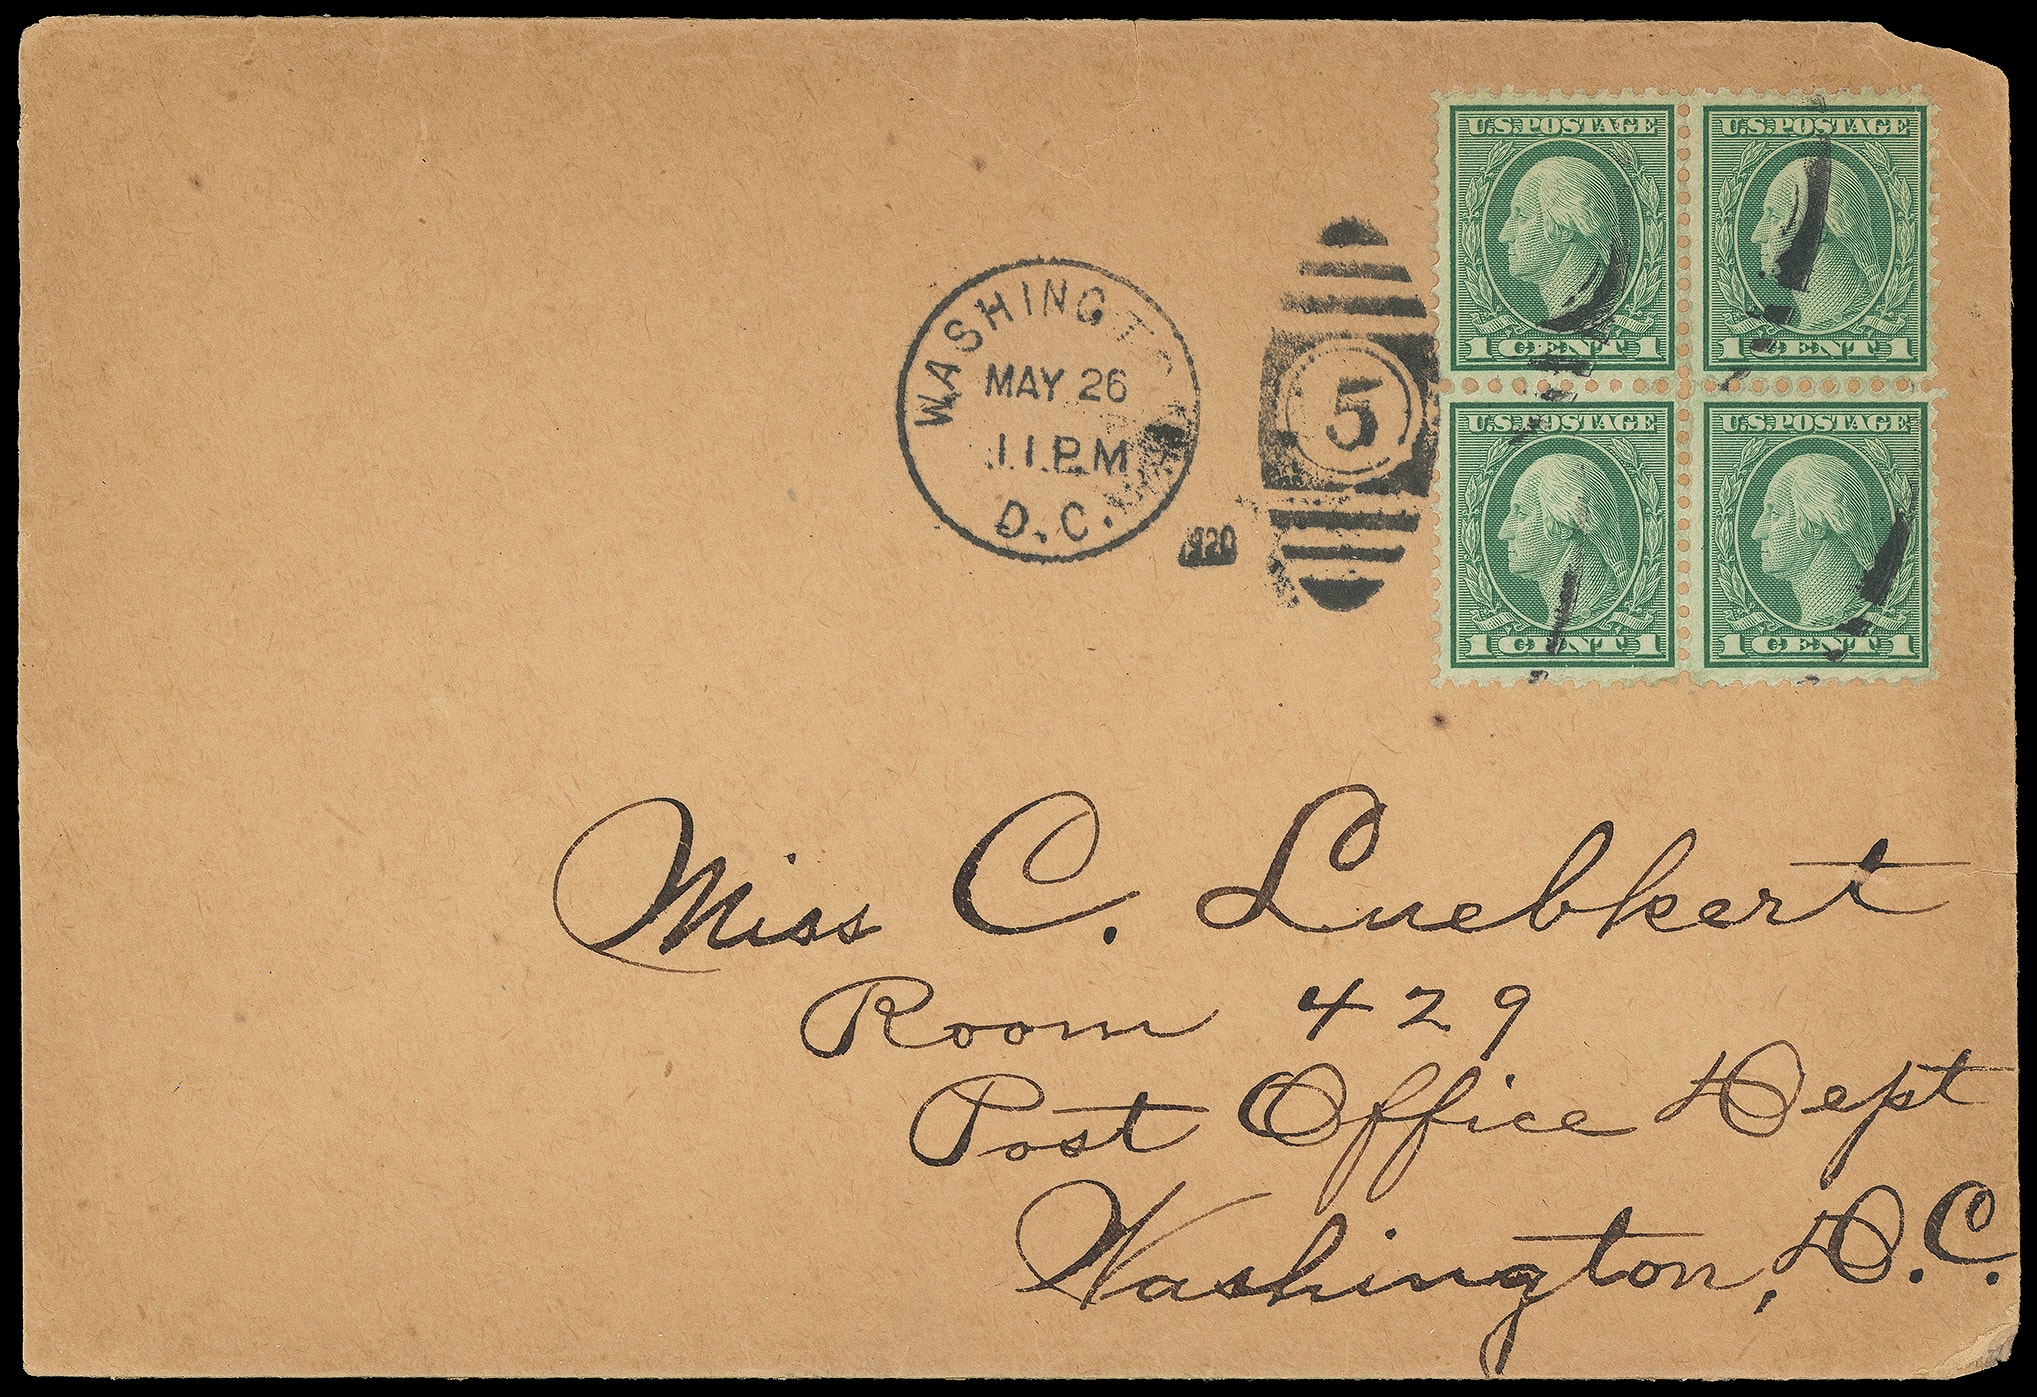 U.S. POSTAGE U.S. POSTAGE
1 CENT 1 1 CENT 1
U.S. POSTAGE U.S. POSTAGE
1 CENT 1 1 CENT 1
WASHINGTON
MAY 26
11 P.M
D.C.
1920
5
Miss C. Luebkert
Room 429
Post Office Dept
Washington, D.C.